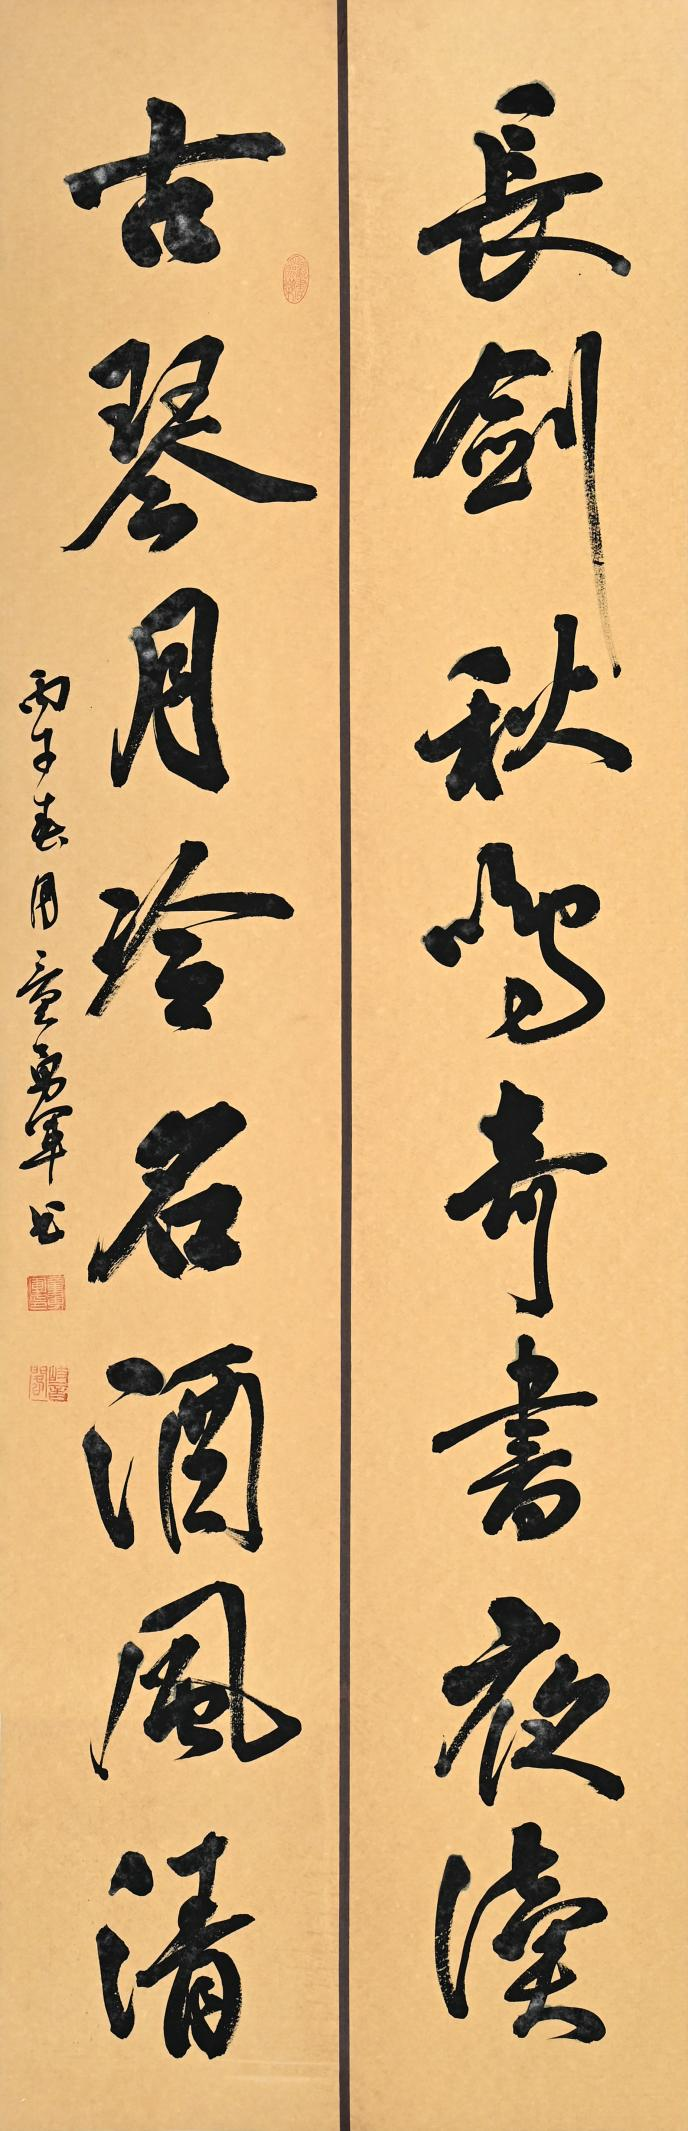 長劍秋鳴奇書夜讀
古琴月冷名酒風清
丙午春月童勇軍书